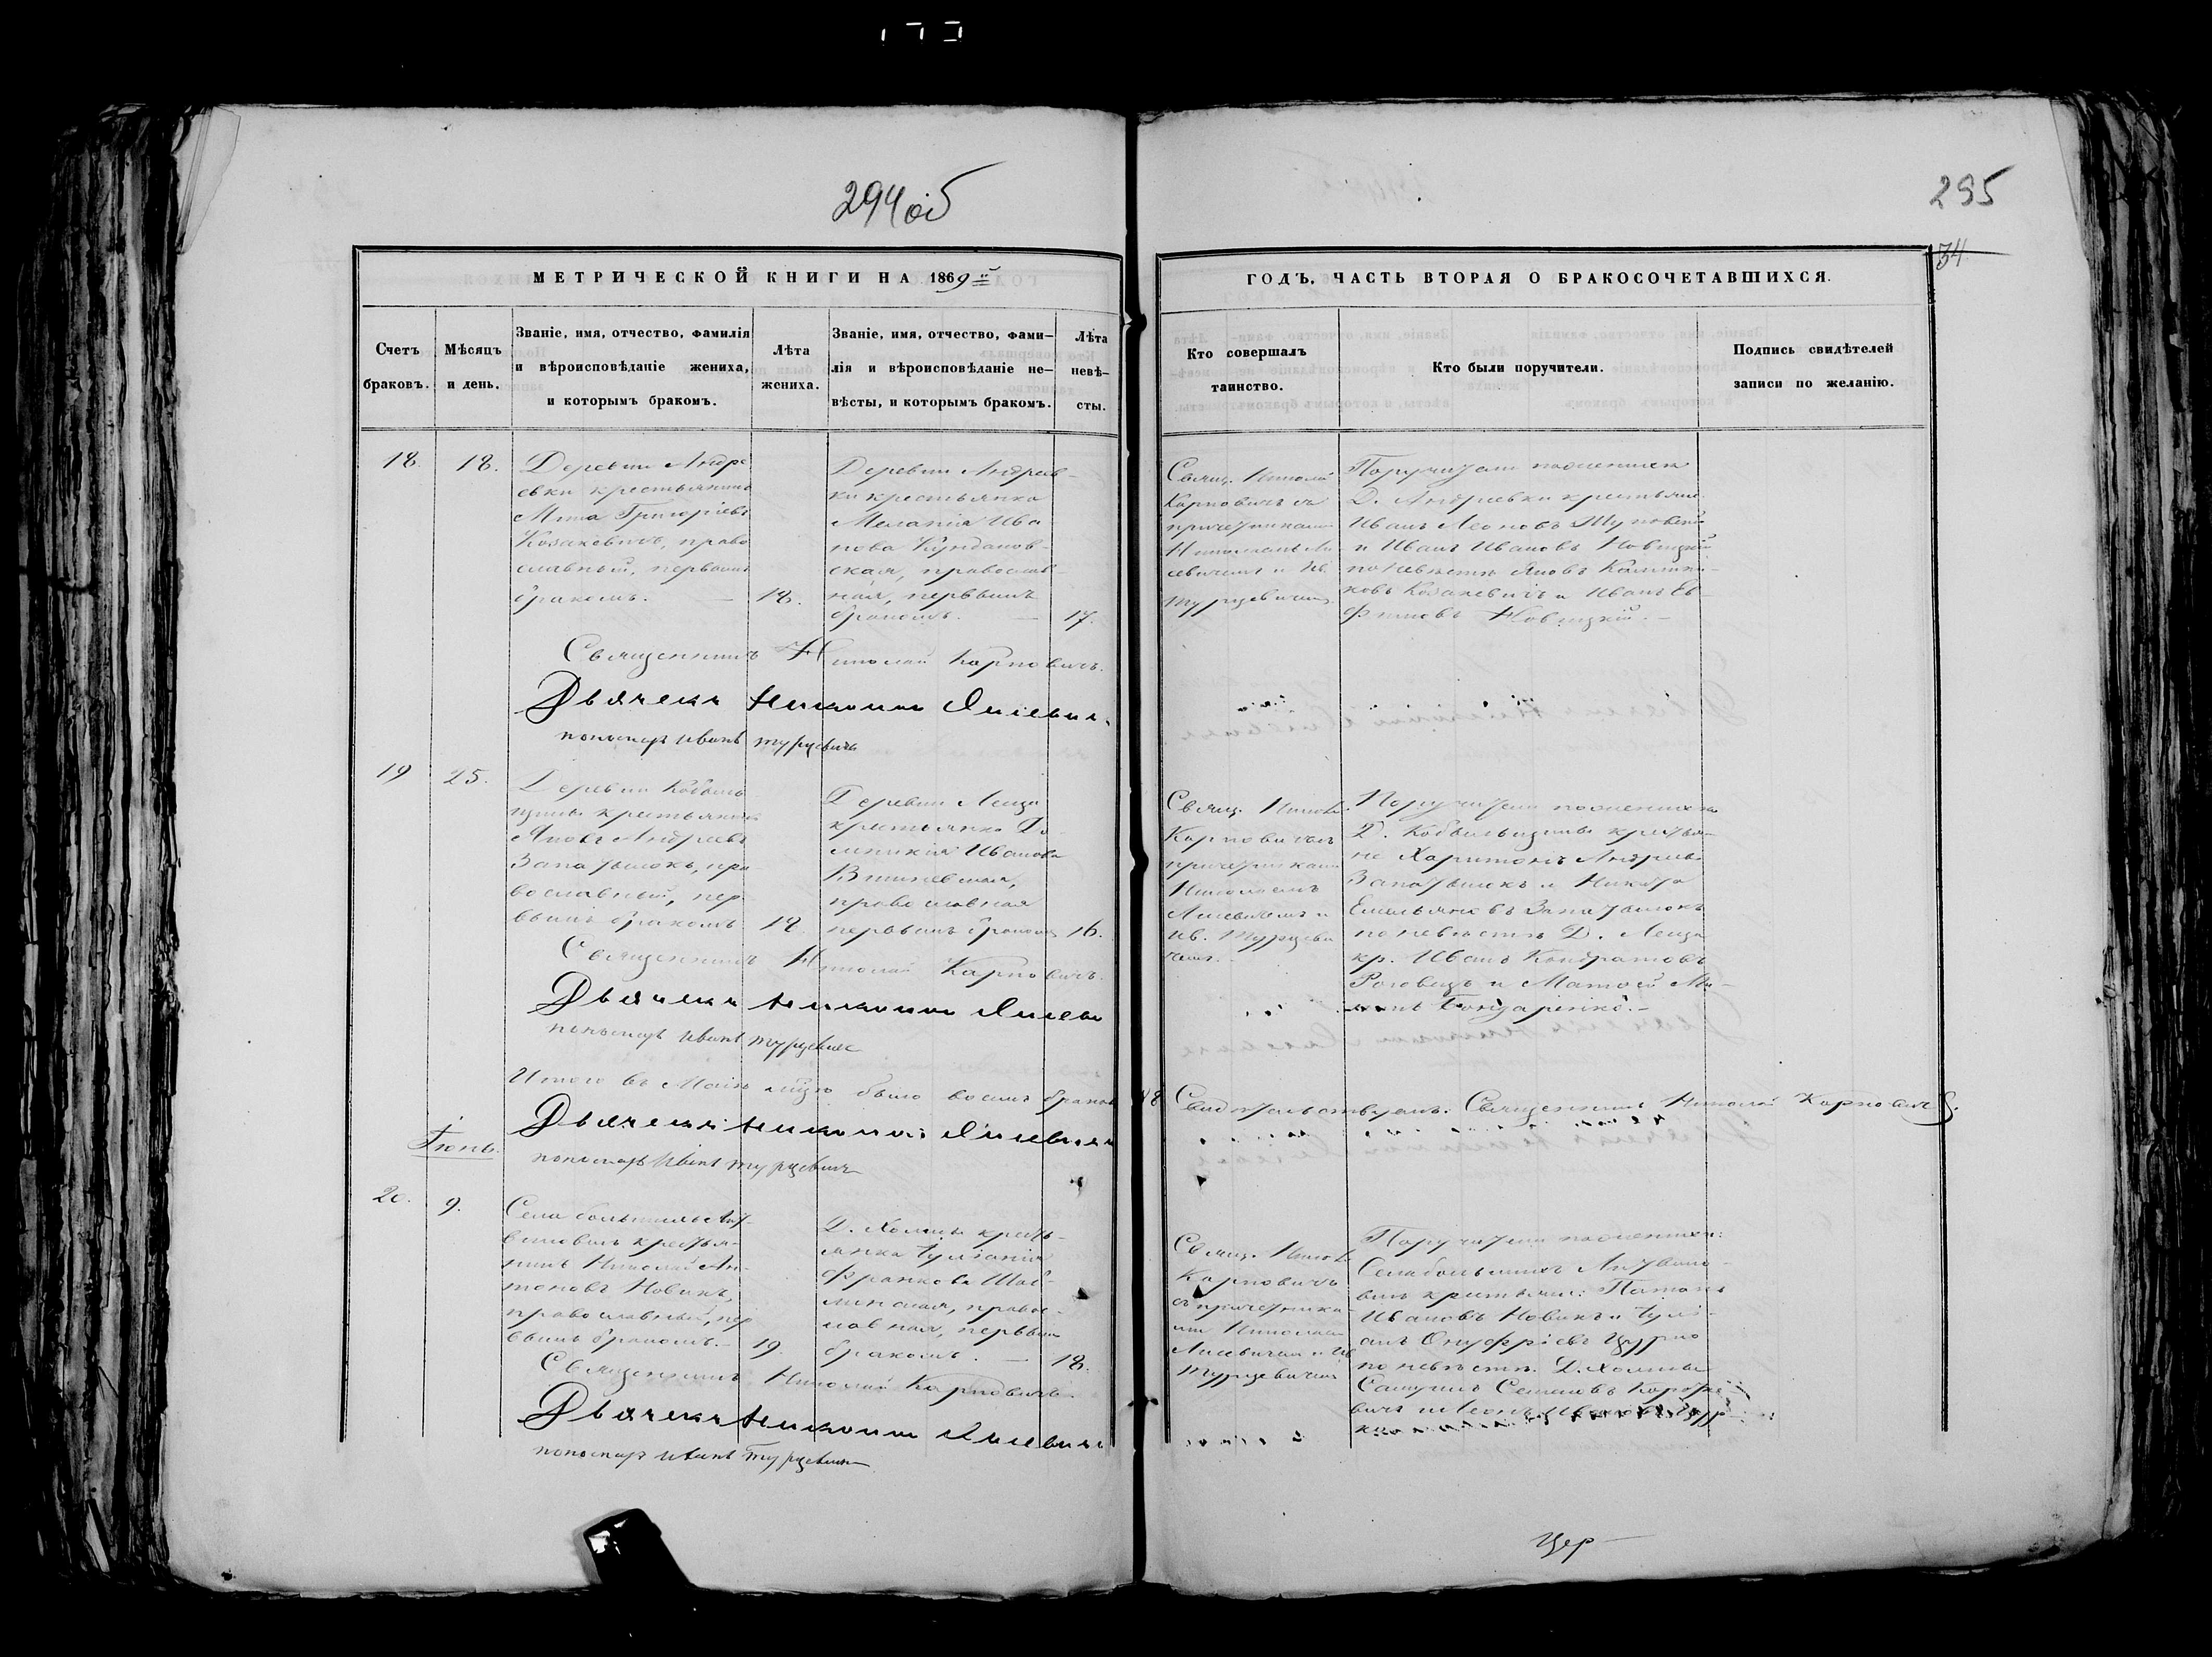 294 об
295
34.
МЕТРИЧЕСКОЙ КНИГИ НА 1869й
ГОДЪ, ЧАСТЬ ВТОРАЯ О БРАКОСОЧЕТАВШИХСЯ.
Счетъ
браковъ.
Мѣсяцъ
и день.
Званіе, имя, отчество, фамилія
и вѣроисповѣданіе жениха,
и которымъ бракомъ.
Лѣта
жениха.
Званіе, имя, отчество, фами-
лія и вѣроисповѣданіе не-
вѣсты, и которымъ бракомъ.
Лѣта
невѣ-
сты.
Кто совершалъ
таинство.
Кто были поручители.
Подпись свидѣтелей
записи по желанію.
18.
18.
Деревни Андре
евки крестьянинъ
Григоріевъ
Козакевичъ, право
славный, первымъ
бракомъ. —
18.
Деревни Андреев-
ки крестьянка
Меланія Ива
нова
ская, православ-
ная, первымъ
бракомъ. —
17.
Свящ. Николай
Карповичъ съ
причетниками
Николаемъ Ли
севичемъ и Ив.
Турцевичемъ
Поручители по женихѣ
Д. Андреевки крестьяне
Иванъ Леоновъ
и Иванъ Ивановъ Новицкій
по невѣстѣ Яковъ
Козакевичъ и Иванъ Ев-
фимовъ Новицкій. —
Священникъ Николай Карповичъ.
Дьячекъ Николай Лисевичъ
пономарь Иванъ Турцевичъ
19
25.
Деревни Кобыль
щины крестьянинъ
Яковъ Андреевъ
Запатылокъ, пра-
вославный, пер
вымъ бракомъ
18.
Деревни Леща
крестьянка До-
мникія Иванова
православная
первымъ бракомъ
16.
Свящ. Никола
Карповичъ съ
причетниками
Николаемъ
Лисевичемъ и
Ив. Турцеви
чемъ.
Поручители по женихѣ
Д. Кобыльщины крестья-
не Харитонъ Андреевъ
Запатылокъ и Никита
Емельяновъ Запатылокъ
по невѣстѣ Д. Леща
кр. Иванъ Кондратовъ
Роговецъ и Матѳей
Бондаренко. —
Священникъ Николай Карповичъ.
Дьячекъ Николай Лисеви
пономарь Иванъ Турцевичъ
Итого въ Маіѣ мцѣ было восемь браковъ
Свидѣтельствуемъ: Священникъ Николай Карповичъ.
Дьячекъ Николай Лисевичъ
пономарь Иванъ Турцевичъ
Іюнь.
20.
9.
Села большихъ Лит-
виновичъ крестья-
нинъ Николай Ан-
тоновъ Новикъ,
православный, пер
вымъ бракомъ. —
19.
Д. Холмы крестъ-
янка Іуліанія
Франкова
правос-
лавная, первымъ
бракомъ. —
18.
Свящ. Никола
Карповичъ
съ причетника-
ми Николаемъ
Лисевичемъ и Ив
Турцевичемъ
Поручители по женихѣ:
Села большихъ Литвино-
вичъ крестьяне:
Ивановъ Новикъ и Іулі-
анъ Онуфріевъ Цурко
по невѣстѣ. Д. Холмы
Самуилъ Семеновъ
Священникъ Николай Карповичъ.
Дьячекъ Николай Лисевичъ
пономарь Иванъ Турцевичъ
Цер—